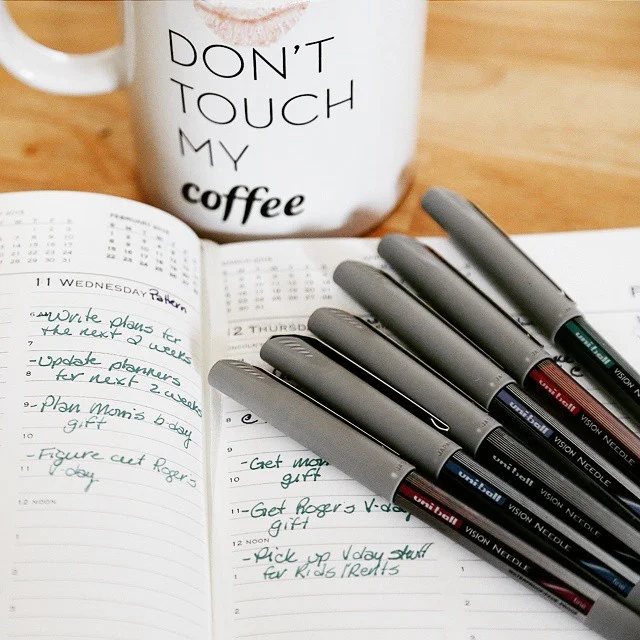 DON'T
TOUCH
MY
coffee
FEBRUARY
11 WEDNESDAY Pattern
- Write plans for
the next 2 weeks
7
- Update planners
8 for next 2 weeks
9 - Plan Mom's b-day
gift
10
- Figure out Roger's
11 V day
12 NOON
1
2
3
2 THURSDAY
8
9
- Get mom
10 gift
11 - Get Roger's V-day
gift
12 NOON
- Pick up V day stuff
1 for Kids/Rents
2
uni-ball VISION NEEDLE
uni-ball VISION NEEDLE
uni-ball VISION NEEDLE
VISION NEEDLE
uni-ball VISION NEEDLE fine
uni-ball VISION NEEDLE fine